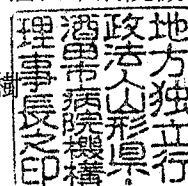 地方独立行
政法人山形県・
酒田市病院機構
理事長之印
樹